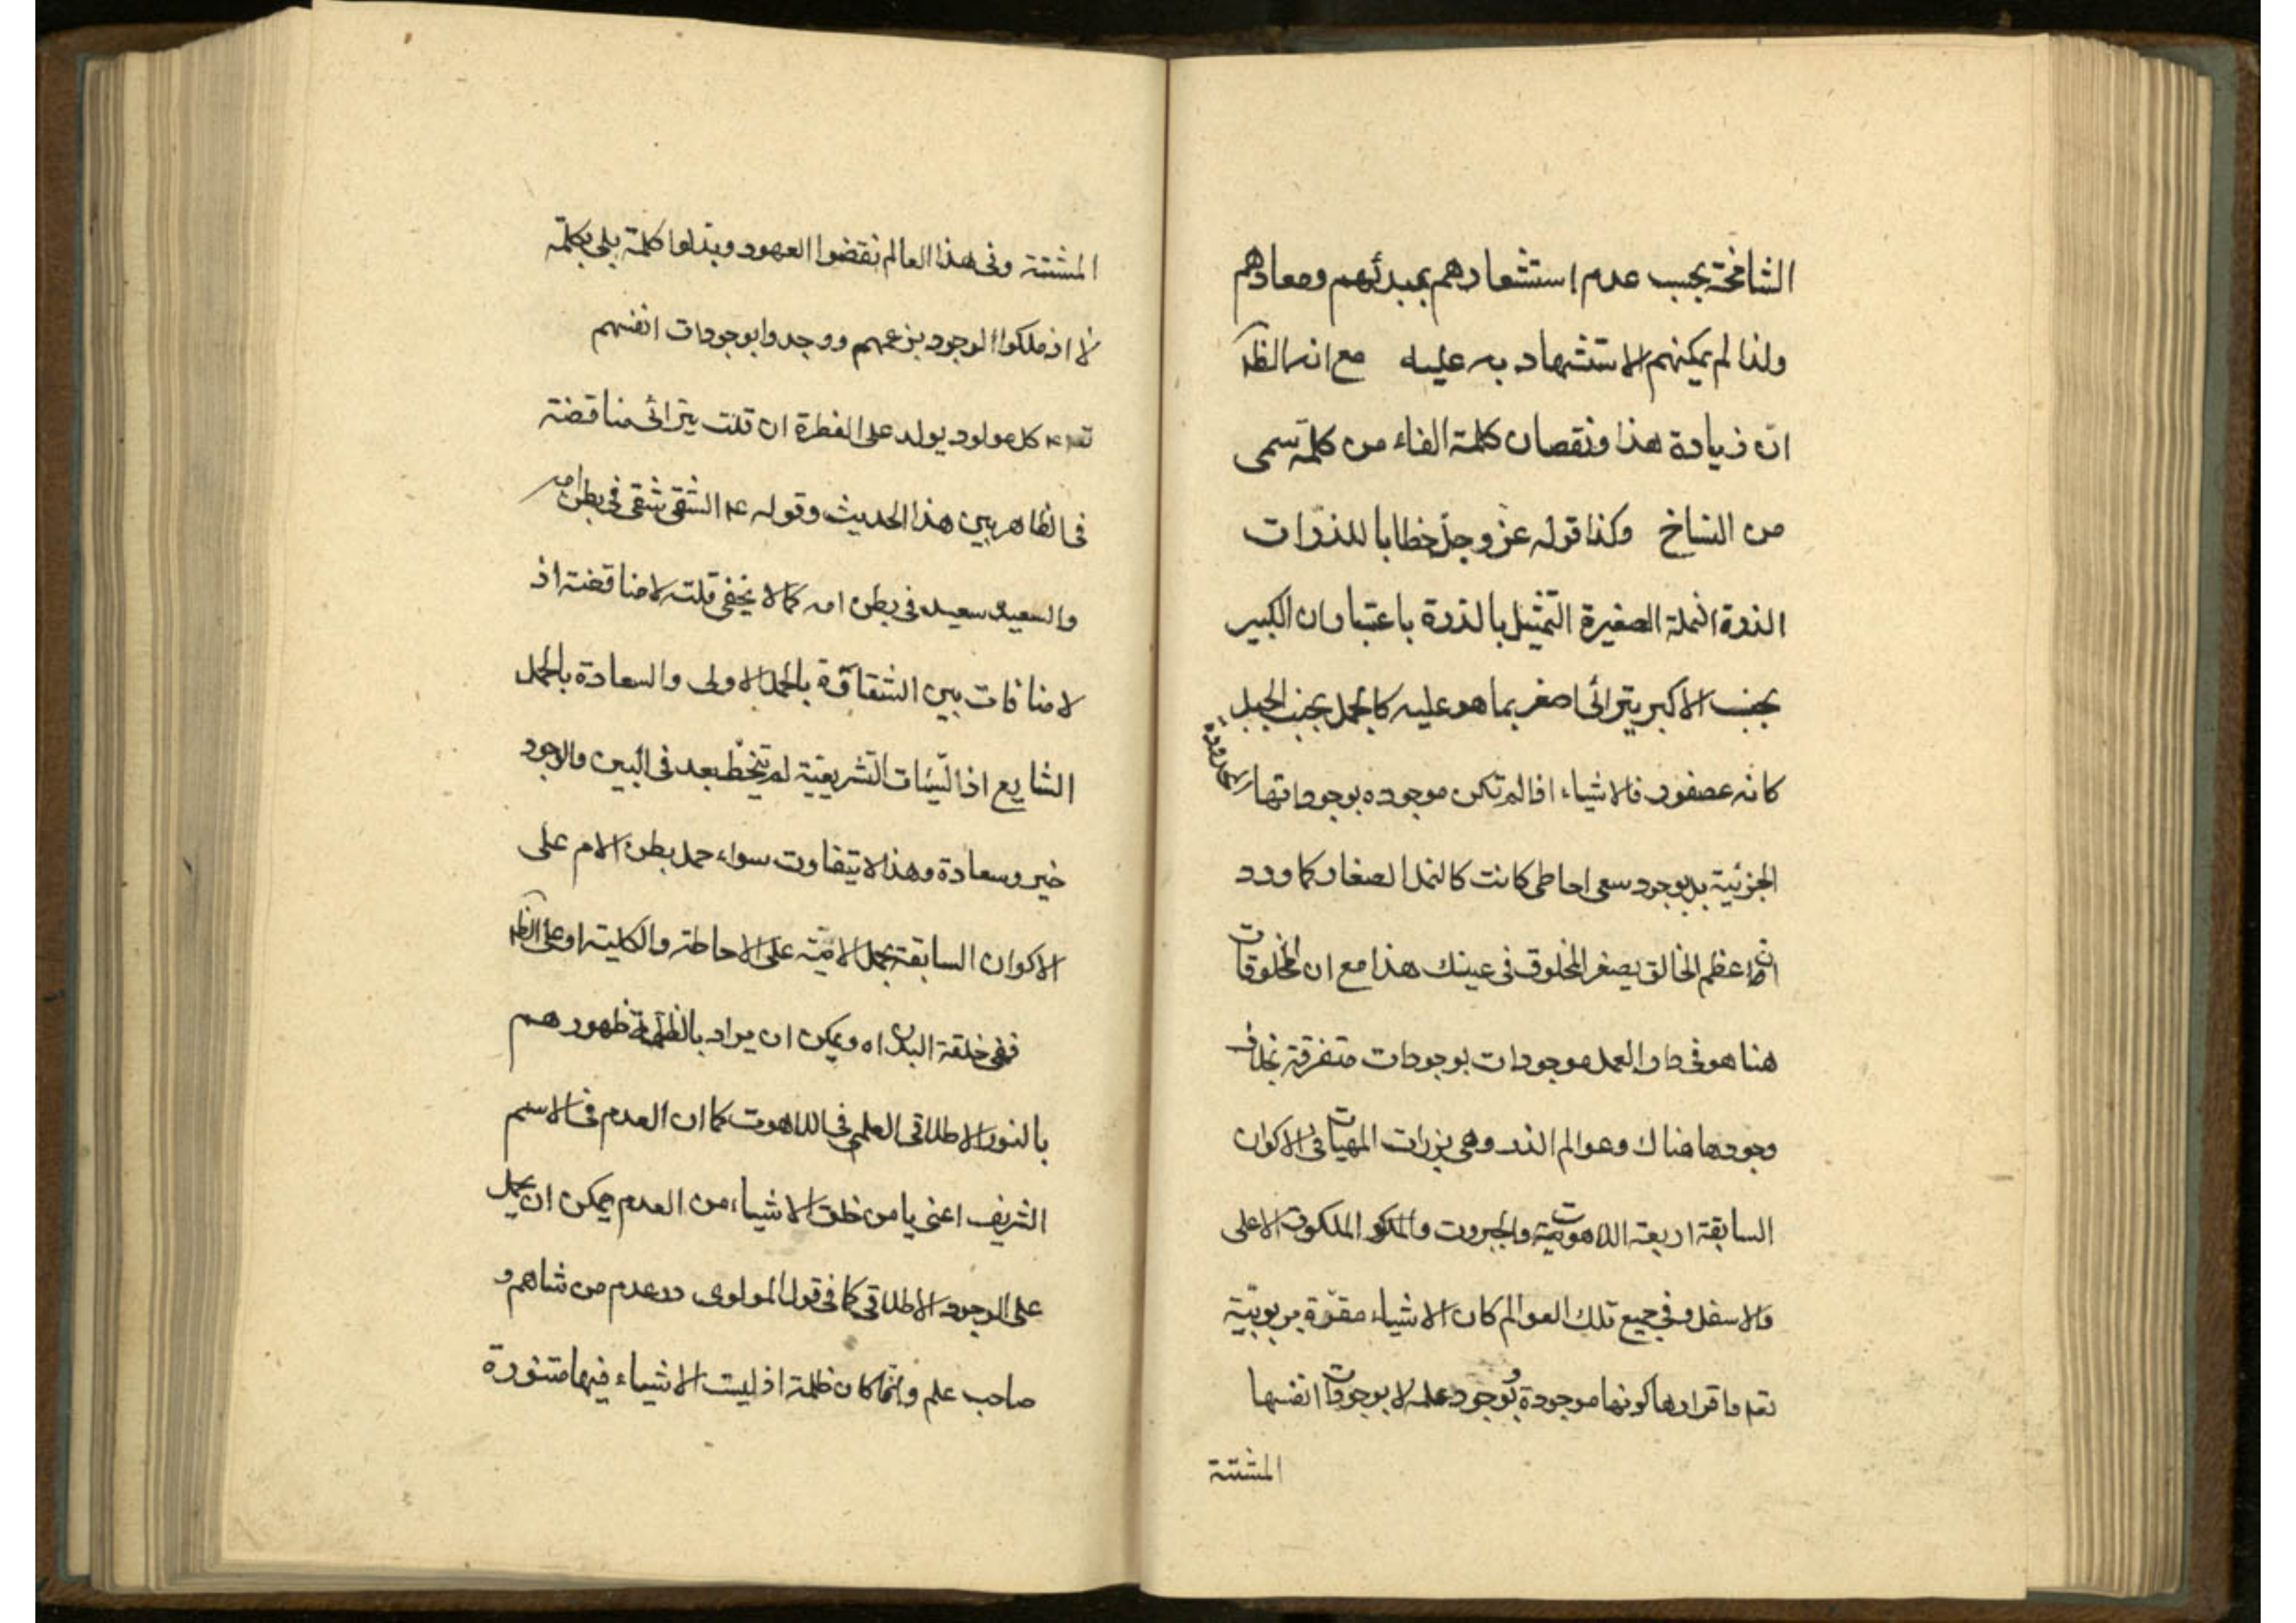 الشامخة بحسب عدم استشعارهم بمبدئهم ومعادهم
ولذا لم يمكنهم الاستشهاد به عليه مع انه الظ
ان زيادة هذا ونقصان كلمة الفاء من كلمة تسمى
من النساخ وكذا قوله عز وجل خطابا للذرات
الذرة النملة الصغيرة التمثيل بالذرة باعتبار ان الكبير
بجنب الاكبر يترائى اصغر بما هو عليه كالجمل بجنب الجبل
كانه عصفور فالاشياء اذا لم تكن موجوده بوجوداتها المحدودة
الجزئية بل بوجود سعى احاطى كانت كالنمل الصغار كما ورد
ان عظم الخالق يصغر المخلوق فى عينك هذا مع ان المخلوقات
هنا هو فى دار العمل موجودات بوجودات متفرقة بخلاف
وجودها هناك وعوالم الذر وهى بزرات المهيات فى الاكوان
السابقة اربعة اللاهوتية والجبروت والملكوت الاعلى
والاسفل وفى جميع تلك العوالم كان الاشياء مقرة بربوبيّة
تعه واقرارها كونها موجودة بوجود علمه لا بوجودات انفسها
المشتتة
المشتتة وفى هذا العالم نقضوا العهود وبدلوا كلمة بلى بكلمة
لا اذ ملكوا الوجود بزعمهم ووجدوا بوجودات انفسهم
كل مولود يولد على الفطرة ان قلت يترائى مناقضة
فى الظاهر بين هذا الحديث وقوله عم الشقى شقى فى بطن امه
والسعيد سعيد فى بطن امه كما لا يخفى قلت لا مناقضة اذ
لا منافات بين الشقاوة بالحمل الاولى والسعادة بالحمل
الشايع اذ السّيئات التشريعية لم يتخط بعد فى البين والوجود
خير وسعادة وهذا لا يتفاوت سواء حمل بطن الام على
الاكوان السابقة بحمل الاميّة على الاحاطة والكلية او على الظ
ففى خلقة البدن اه ويمكن ان يراد بالظلمة ظهورهم
بالنور الاطلاقى العلمى فى اللاهوت كما ان العدم فى الاسم
الشريف اعنى يا من خلق الاشياء من العدم يمكن ان يحمل
على الوجود الاطلاقى كما فى قول المولوى در عدم من شاهم و
صاحب علم وانما كان ظلمة اذ ليست الاشياء فيها متنورة